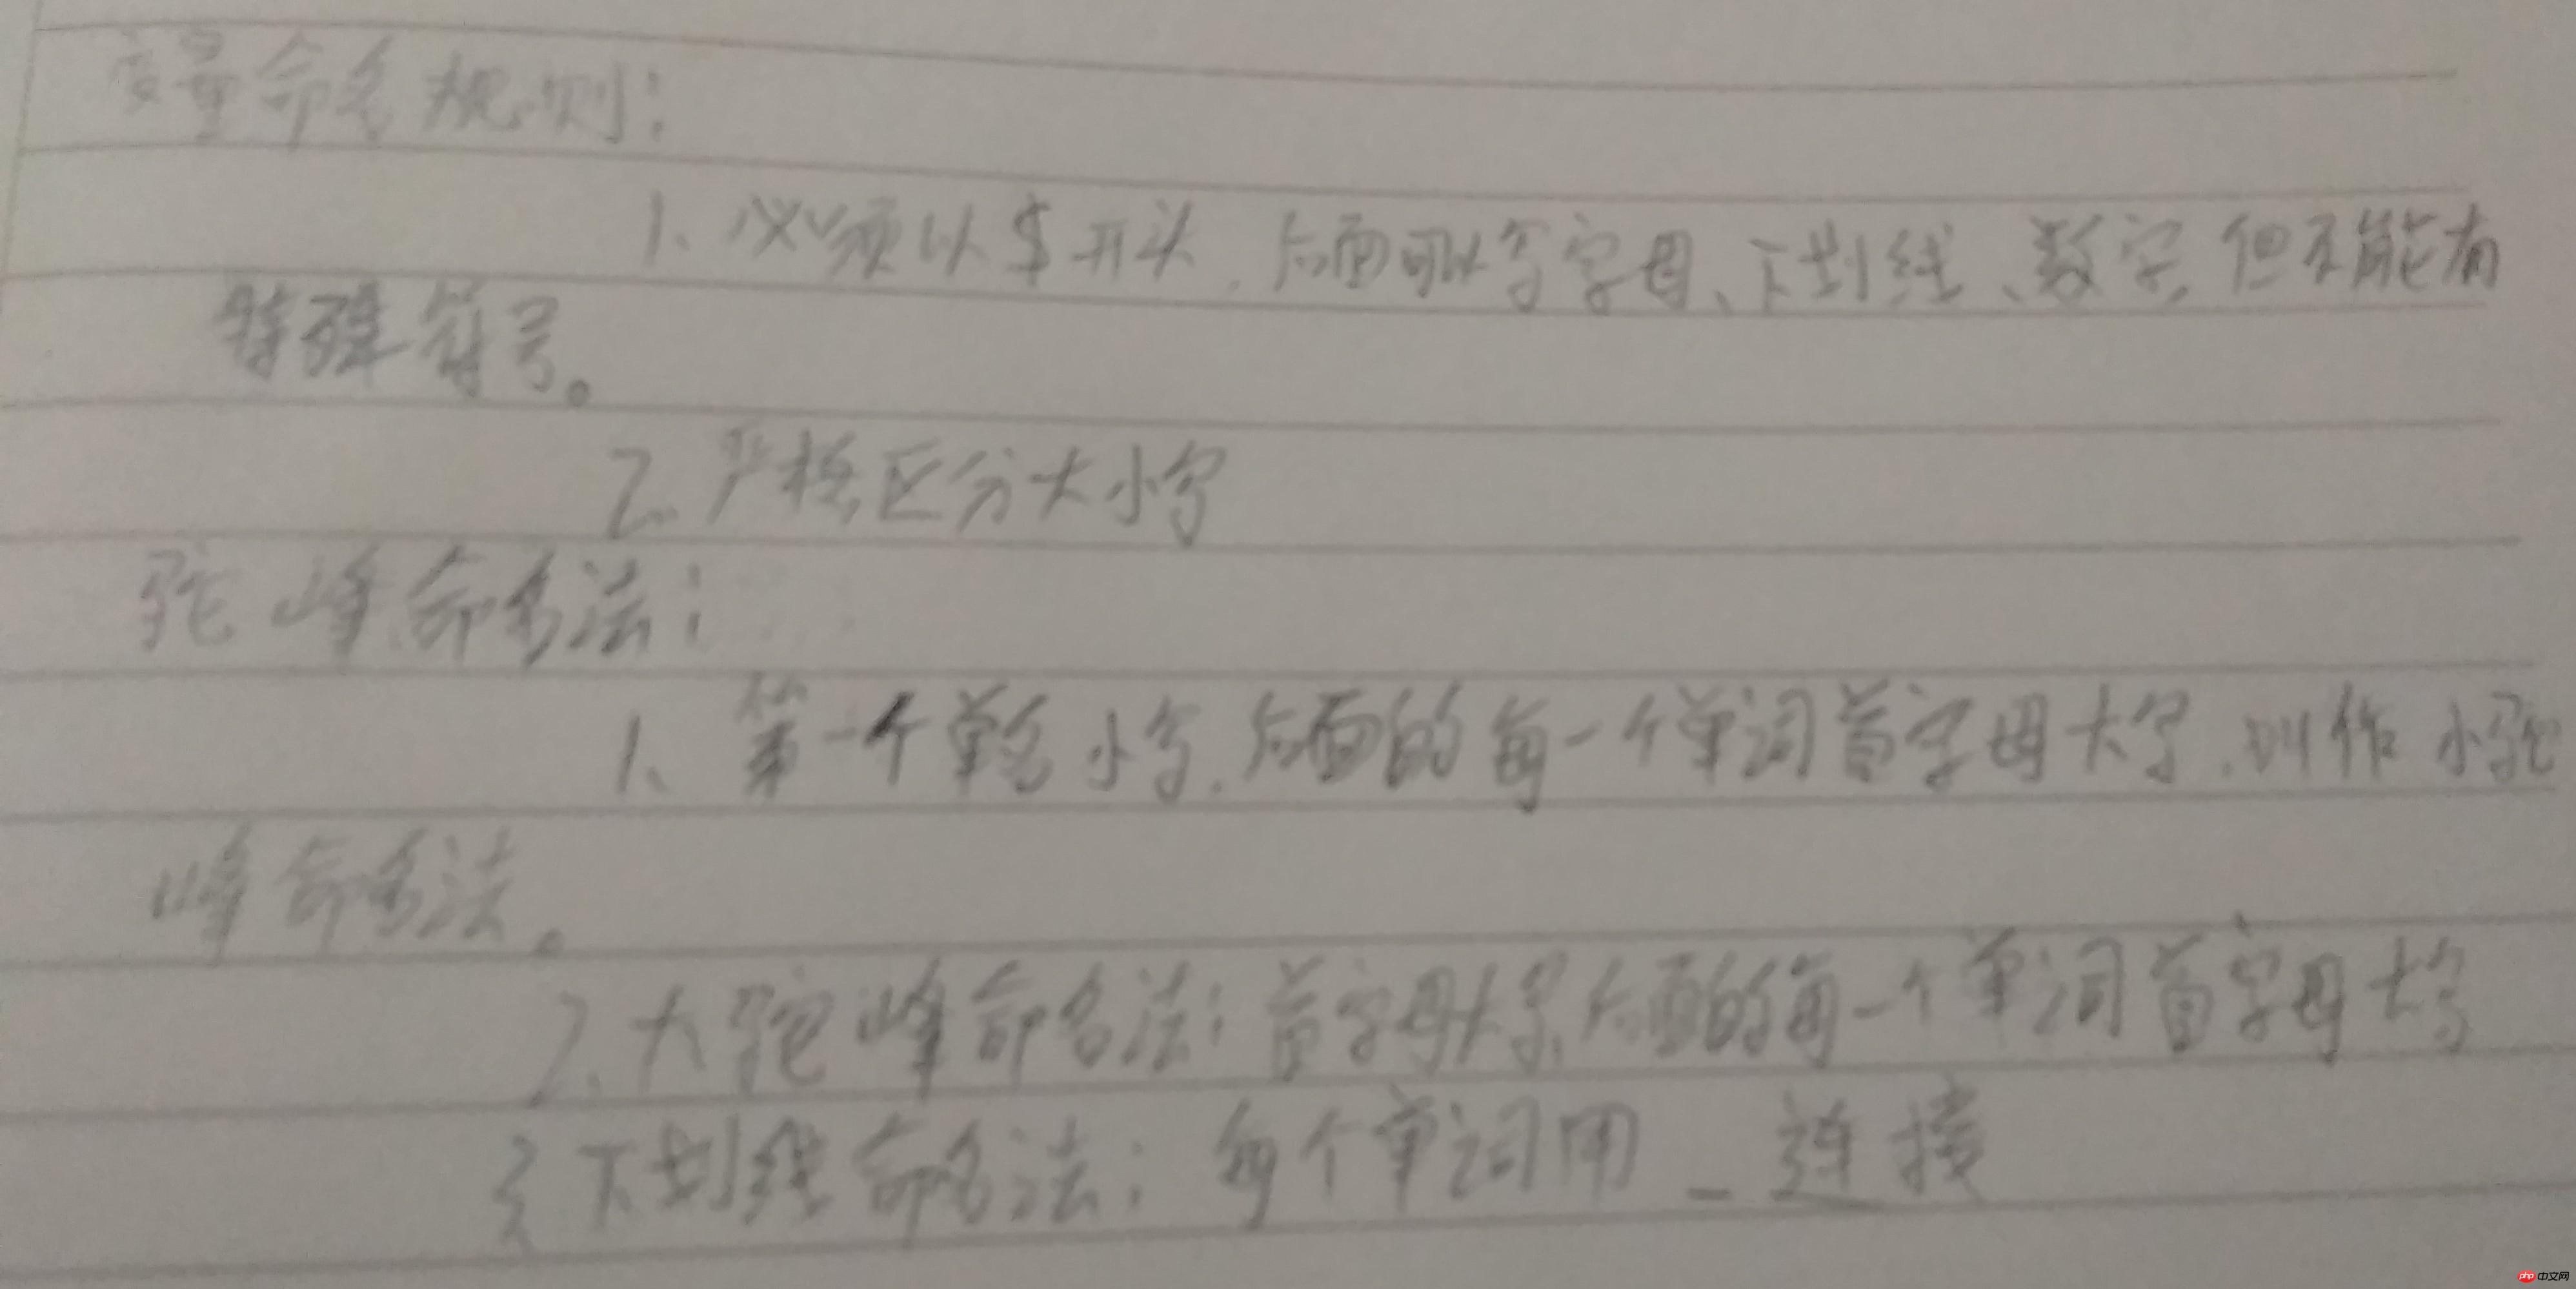 变量命名规则：
1、必须以$开头，后面可以写字母、下划线、数字，但不能有
特殊符号。
2、严格区分大小写
驼峰命名法：
1、第一个单 小写，后面的每一个单词首字母大写，叫作小驼
峰命名法。
2、大驼峰命名法：首字母大写，后面的每一个单词首字母大写
3、下划线命名法：每个单词用_连接
php中文网